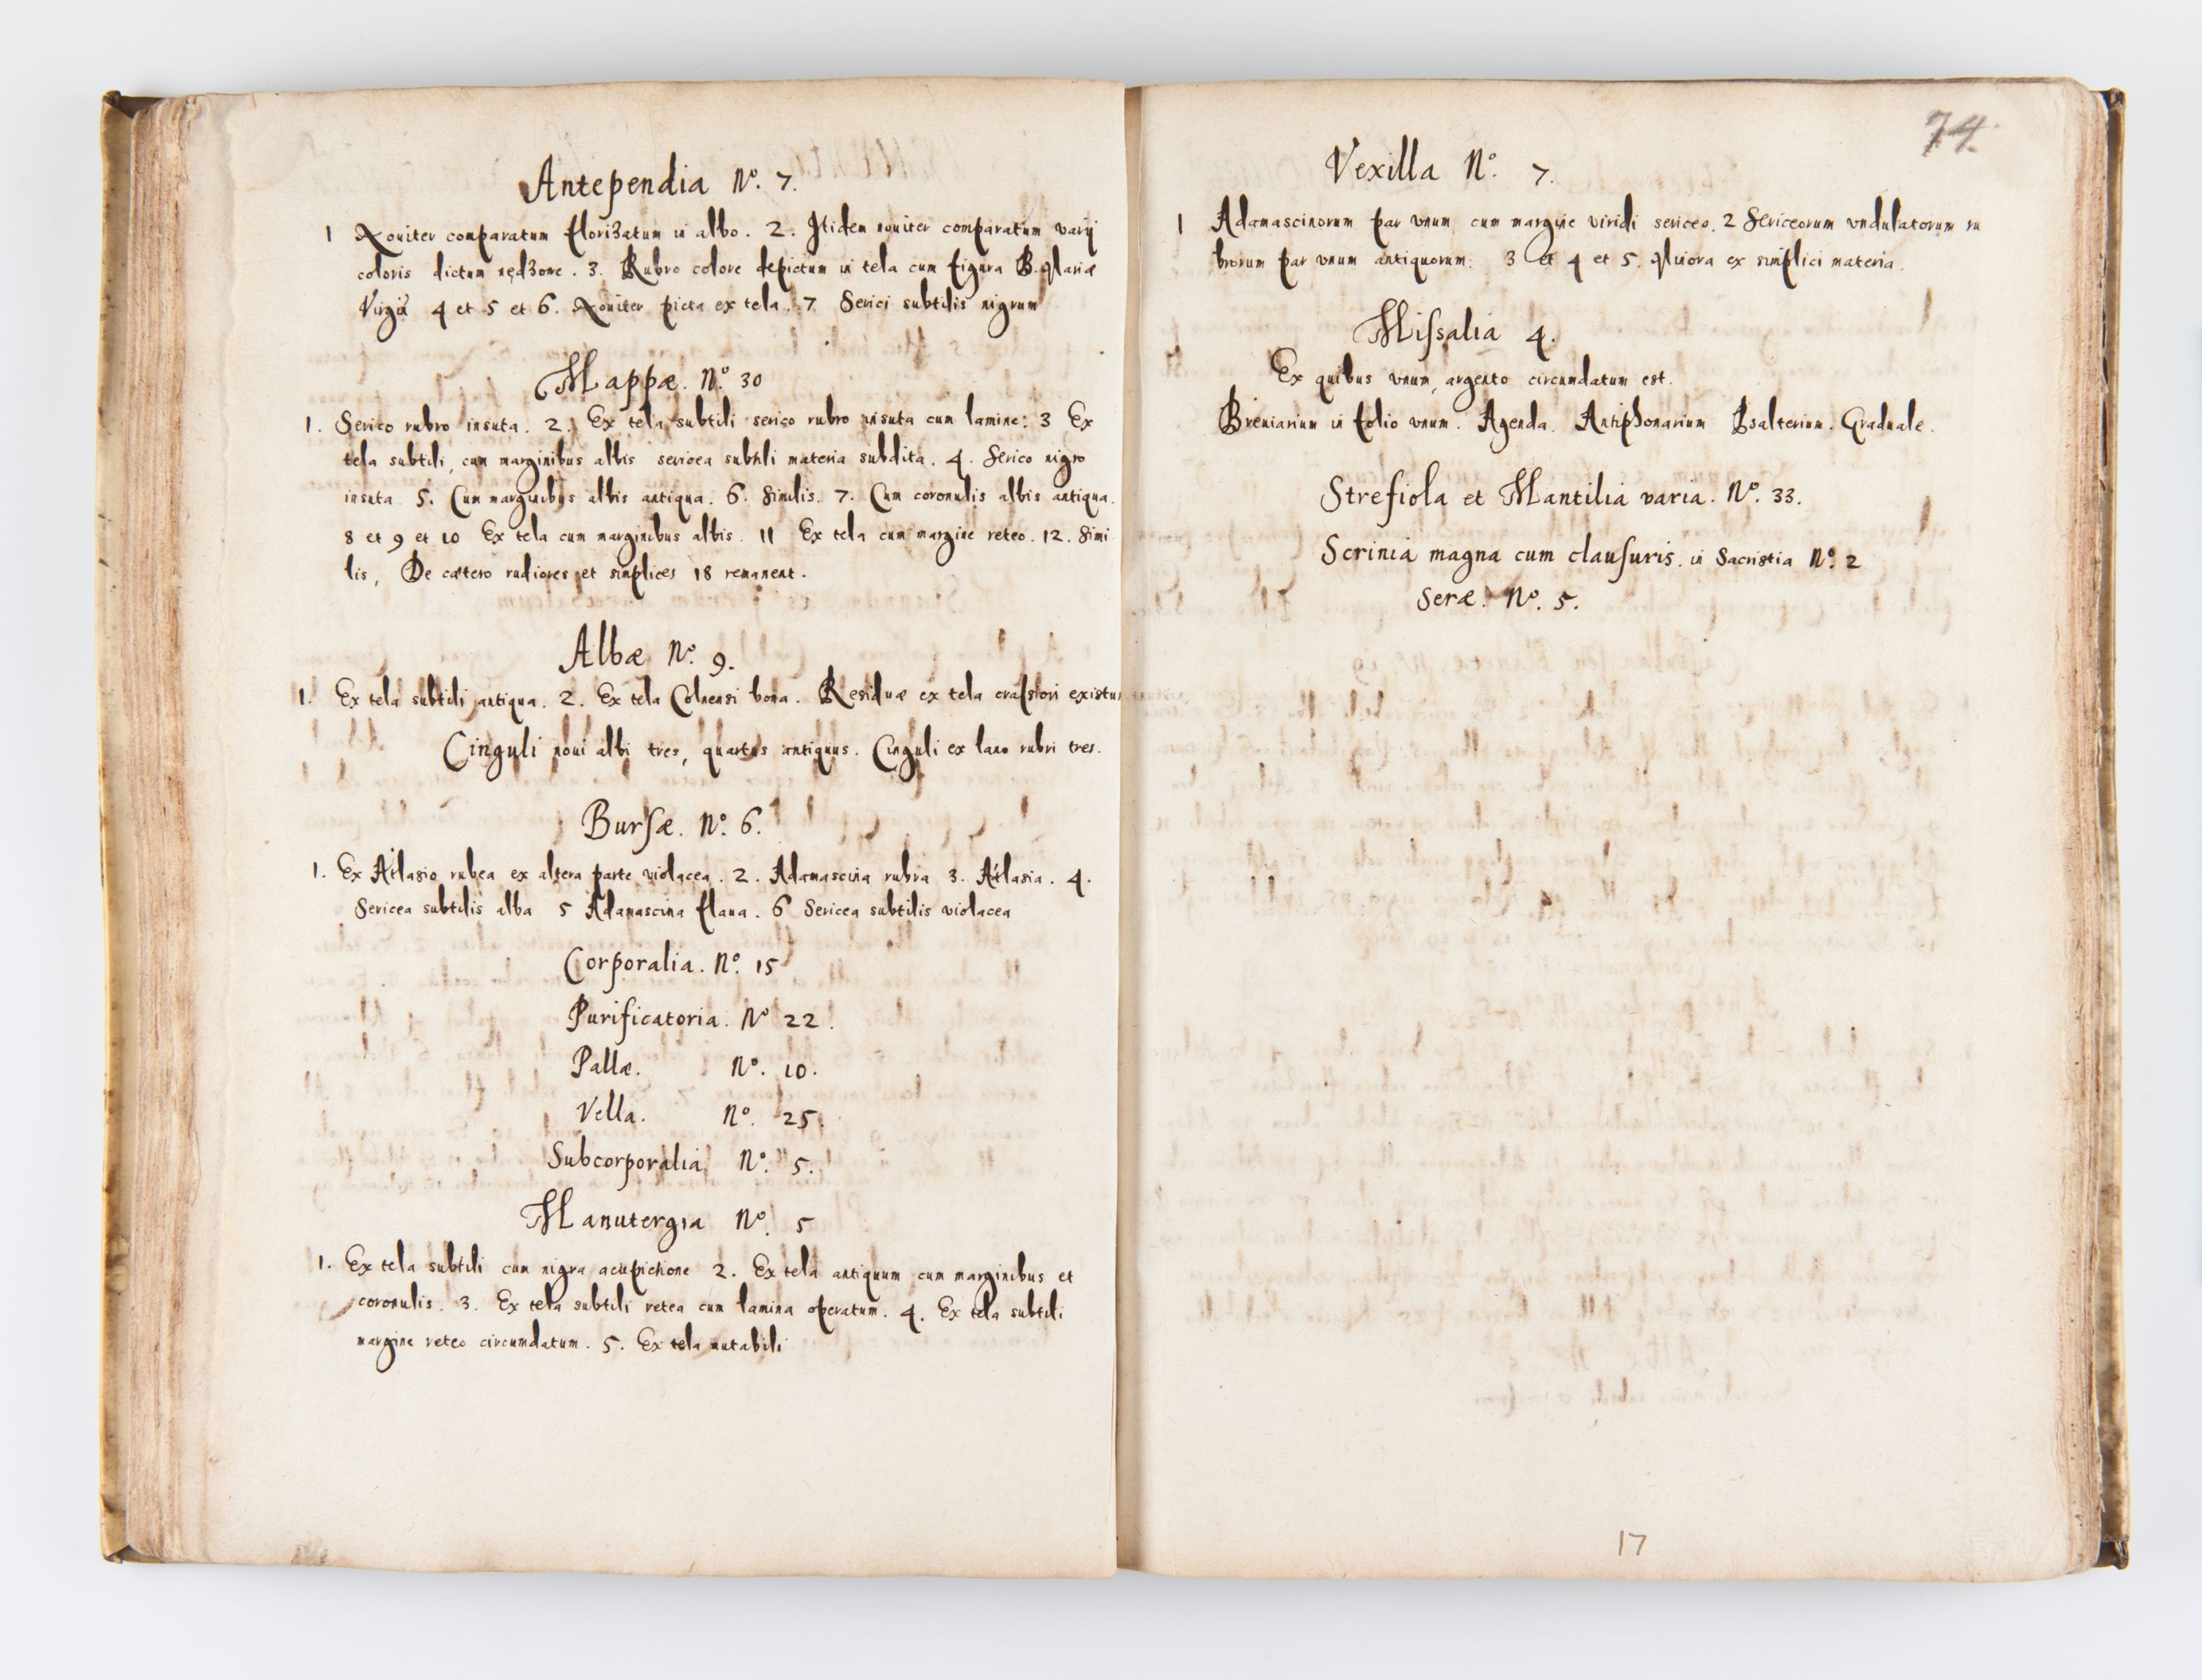 Antependia N°. 7.
1 Noviter comparatum florizatum in albo. 2. Itidem noviter comparatum varij
coloris dictum nędzone. 3. Rubro colore depictum in tela cum figura B. Mariæ
Virgīs 4 et 5 et 6. Noviter picta ex tela. 7 Serici subtilis nigrum
Mappæ. N°. 30
1. Serico rubro insuta. 2. Ex tela subtili serico rubro insuta cum lamine: 3 Ex
tela subtili, cum marginibus albis sericea subtili materia subdita. 4. Serico nigro
insuta 5. Cum marginibus albis antiqua. 6. Similis. 7. Cum coronulis albis antiqua.
8 et 9 et 10 Ex tela cum marginibus albis. 11 Ex tela cum margine reteo. 12. Simi
lis, De cætero rudiores et simplices 18 remanent.
Albæ N°. 9.
1. Ex tela subtili antiqua. 2. Ex tela Colnensi bona. Residuæ ex tela crassiori existu
Cinguli novi albi tres, quartus antiquus. Cinguli ex lano rubri tres.
Bursæ. N°. 6.
1. Ex Atlasio rubea ex altera parte violacea. 2. Adamascina rubra 3. Atlasia. 4.
Sericea subtilis alba 5 Adamascina flava. 6 Sericea subtilis violacea
Corporalia. N°. 15
Purificatoria. N° 22.
Pallæ. N°. 10.
Vella. N°. 25.
Subcorporalia N°. 5.
Manutergia N°. 5
1. Ex tela subtili cum nigra acupictione 2. Ex tela antiquum cum marginibus et
coronulis. 3. Ex tela subtili retea cum lamina operatum. 4. Ex tela subtili
margine reteo circumdatum. 5. Ex tela mutabili
74.
Vexilla N°. 7.
1 Adamascinorum par vnum cum margine viridi sericeo. 2 Sericeorum vndulatorum ru
brorum par vnum antiquorum. 3 et 4 et 5. Minora ex simplici materia.
Missalia 4.
Ex quibus vnum, argento circumdatum est.
Breviarium in folio vnum. Agenda. Antiphonarium Psalterium. Graduale.
Strefiola et Mantilia varia. N°. 33.
Scrinia magna cum clausuris. in Sacristia N°. 2
Seræ. N°. 5.
17